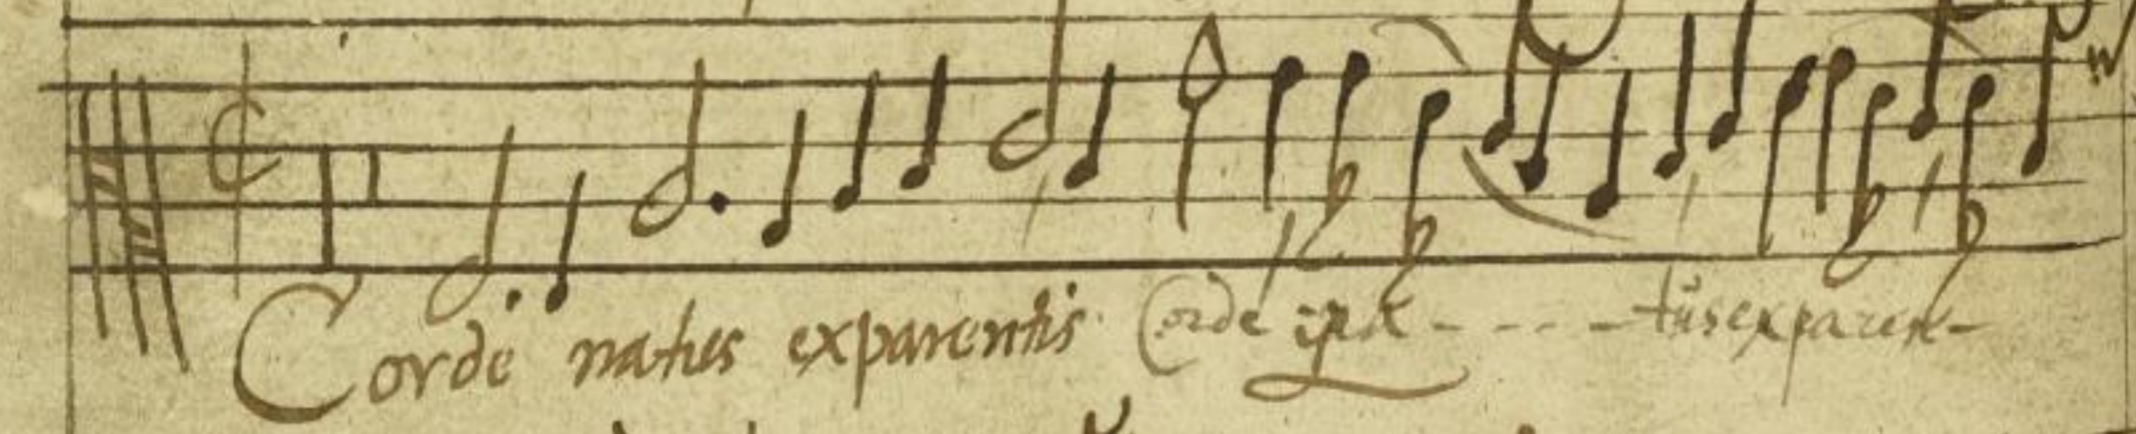 Corde natus exparentis Corde na - - - - tus exparen-